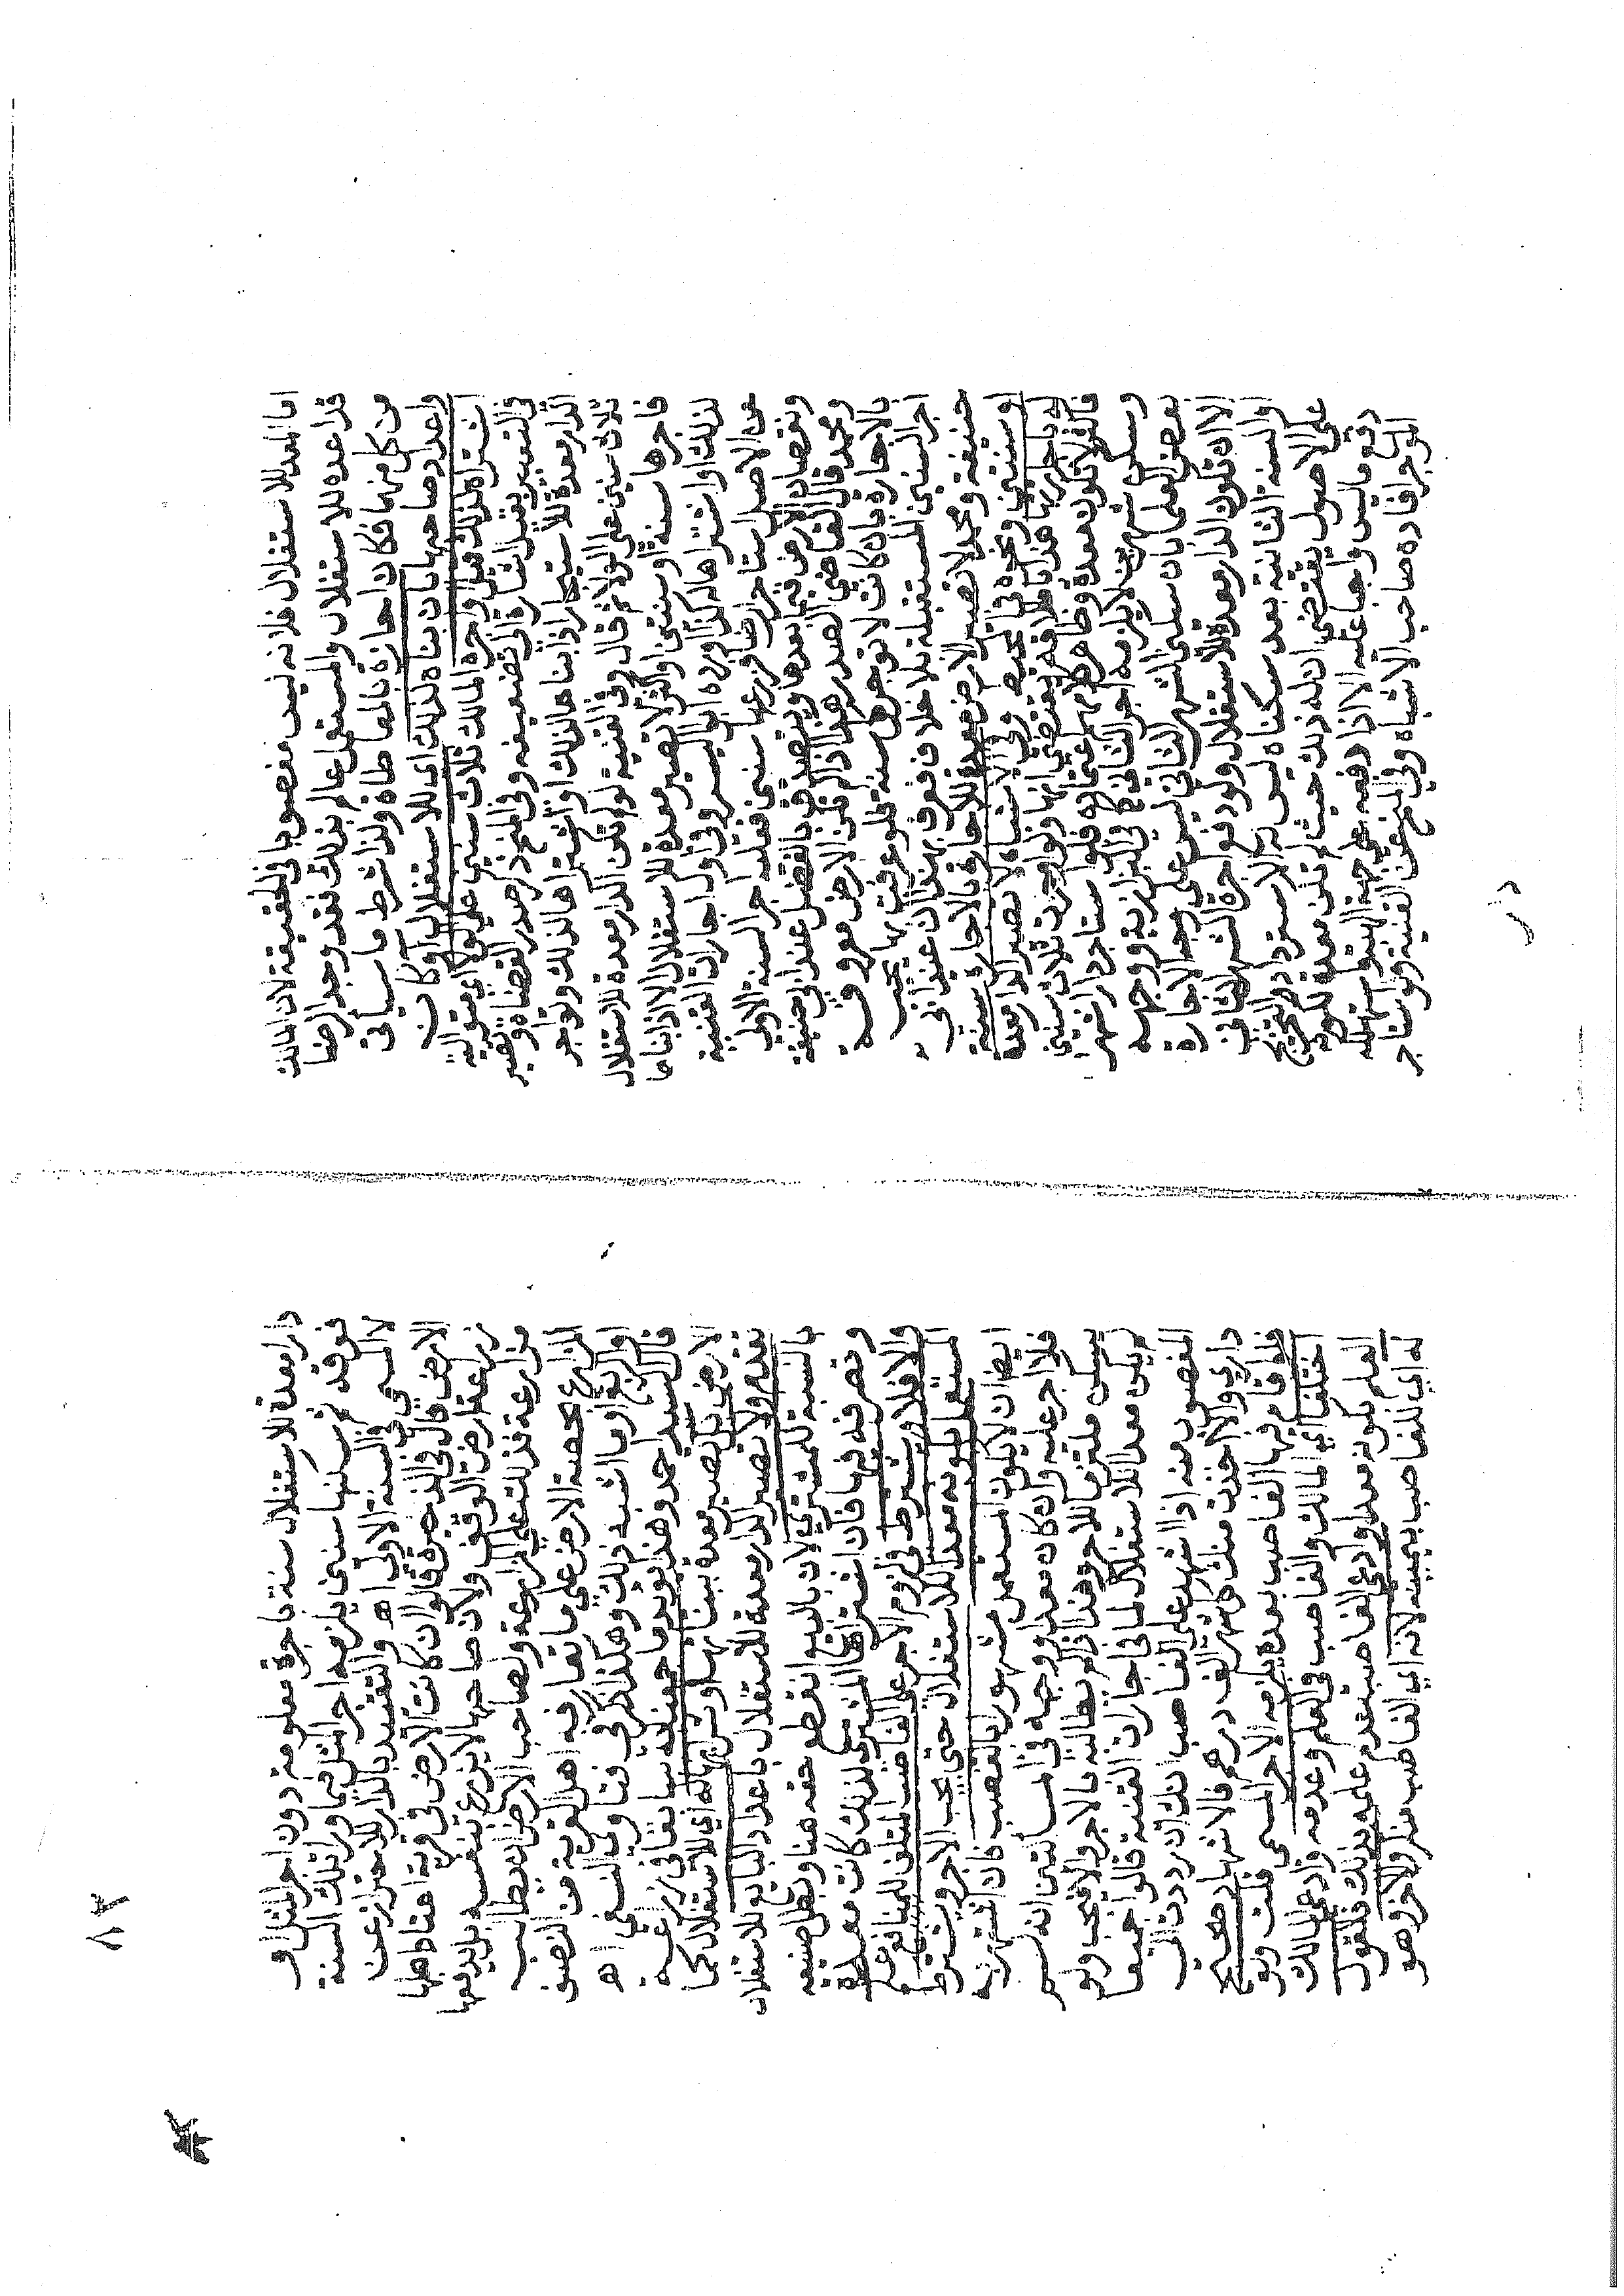 اما المعد للاستغلال فلانه ليس مغصوبا في الحقيقة لان المالك
قد اعده للاستغلال والمستعمل عالم بذلك فقد وجد الرضا
من كل منهما فكان اجازة بالمعاطاة ولذا شرط ما سيأتي
واعداد صاحبها بان بناه لذلك اي للاستغلال او كان
اشتراه لذلك قيل او آجره المالك ثلاث سنين على الولا اي متوالية
في التعبير بقيل اشارة الى تضعيفه وفي المنح ذكر صدر القضاة وتصير
الدار معدة للاستيجار اذا بناها لذلك او اشتراها لذلك ولو اجر
ثلاث سنين على الولاء ثم قال وفي القنية لو لم تكن الدار معدة للاستغلال
فاجرها سنة او سنتين او اكثر لا تصير معدة للاستغلال الا اذا بناها
لذلك او اشتراها له كذا اورده ابو اليسر وفي اول اجارات القنية
عن الاصل استأجر ارضا فزرعها سنين فعليه اجر السنة الاولى
ونقصان الارض فيما بعدها ويتصدق بالفضل عند ابي حنيفة
ومحمد قال القاضي الصدر هذا اذا لم تكن الارض معروفة
بالاجارة بان كانت لا توجر كل سنة فلو عرفت بها يجب
اجر السنين المستقبلة بلا خلاف فعرف بهذا ان عند ابي
حنيفة ومحمد لا تصير الارض معدة للاجارة بالاجارة سنة
او سنتين ونحوه في المحيط وفي الاشباه لا تصير الدار معدة
له باجارتها هذا باطلاقه يقتضي انها ولو اجرت ثلاث سنين
فاكثر لا تكون معدة وظاهر كلامهم اعتماده فلو استاجر دارا شهرا
وسكن شهرين لا يلزمه اجر الثاني في البزازية ووجهه
بعض العلما بان سكنى الشهر الثاني ليس على وجه الاجارة
الا ان تكون الدار معدة للاستغلال ولو دفع اجرة الشهر الثاني
او السنة الثانية بعد سكناه ليس له الاسترداد والتخريج
على الاصول يقتضي ان له ذلك حيث لم تكن معدة لكونه
دفع ما ليس واجبا عليه الا اذا دفعه على جهة الهبة واستهلكه
الموجر افاده صاحب الاشباه وفي المنح عن القنية ولو استاجر
دارا معدة للاستغلال سنة باجرة معلومة دون اجر المثل او
فوقه ثم سكنها سنين يلزمه اجر المثل فيما وراء تلك السنة
لا المسمى في السنة الاولى اهـ والتقييد بالدار للاحتراز عن
الارض قال في الذخيرة قالوا ان كانت الارض في قرية اعتاد اهلها
زراعة ارض الوقف ولان صاحبها لا يزرع بنفسه بل يدفعها
مزارعة فذلك على المزارعة ولصاحب الارض ان يطالب
الزارع بحصة الارض على ما تعارفه اهل القرية من النصف
او الربع او ما اشبه ذلك وهكذا ذكر في فتاوى النسفي اهـ
قال السيد احمد وهذا يؤيد ما حققناه سابقا في زرعه
الارض بل تصير معده ببنائها وشرائها له اي للاستغلال كما
تقدم ولا تصير الدار معدة للاستغلال باعداد البايع للاستغلال
بالنسبة للمشتري لان بالبيع انقطع حقه عنا وبطل صنيعه
وتصرفه فيها فان اشتراها المشتري لذلك كانت معدة
والا فلا ويشترط في لزوم الاجر على الغاصب المتلف للمنافع علم
المستعمل بكونه معدا للاستغلال حتى يجب الاجر ويشترط
ايضا ان لا يكون المستعمل مشهورا بالغصب فان اشتهر به
فلا اجر عليه وان كان معدا ووجهه في المسالتين انه لم
يسكن ملتزما للاجر وهذا اذا لم يطالبه بالاجر والا فيجب ولو
لم يكن معدا للاستغلال لما في اجارات القنية قالوا جميعا
المغصوب منه اذا اشهد على الغاصب انك ان رددت الى
داري والا اخذت منك كل شهر الف درهم فالاشهاد صحيح
فلو اقام فيها الغاصب بعده يلزمه الاجر المسمى قلت ولو
اختلفا اي المالك والغاصب في العلم وعدمه وادعى المالك
العلم بكونه معدا وادعى الغاصب عدم علمه بذلك فالقول
له اي للغاصب بيمينه لانه اي الغاصب منكر والاخر وهو
٨٢